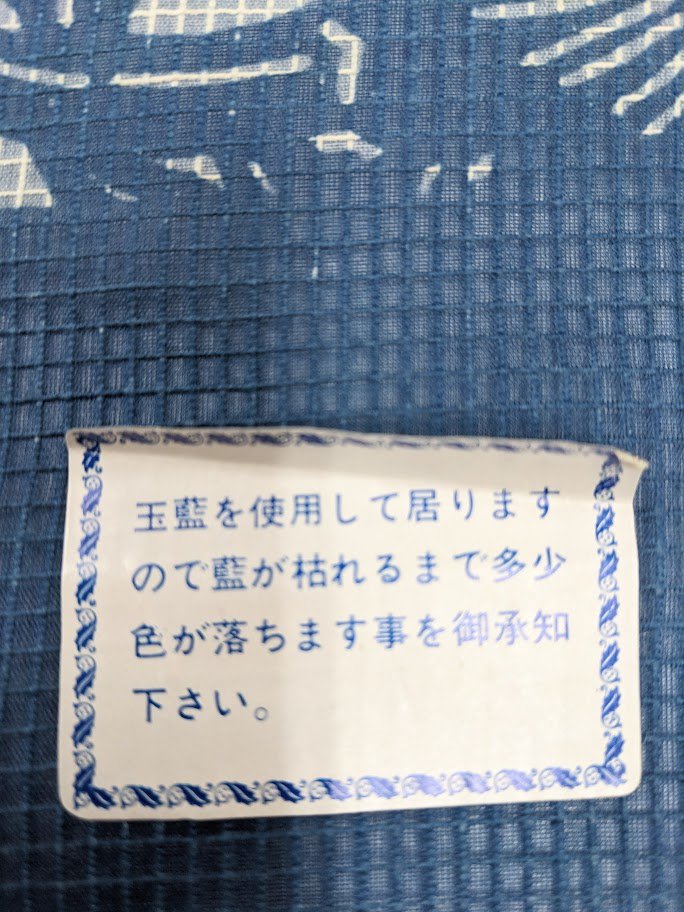 玉藍を使用して居ります
ので藍が枯れるまで多少
色が落ちます事を御承知
下さい。